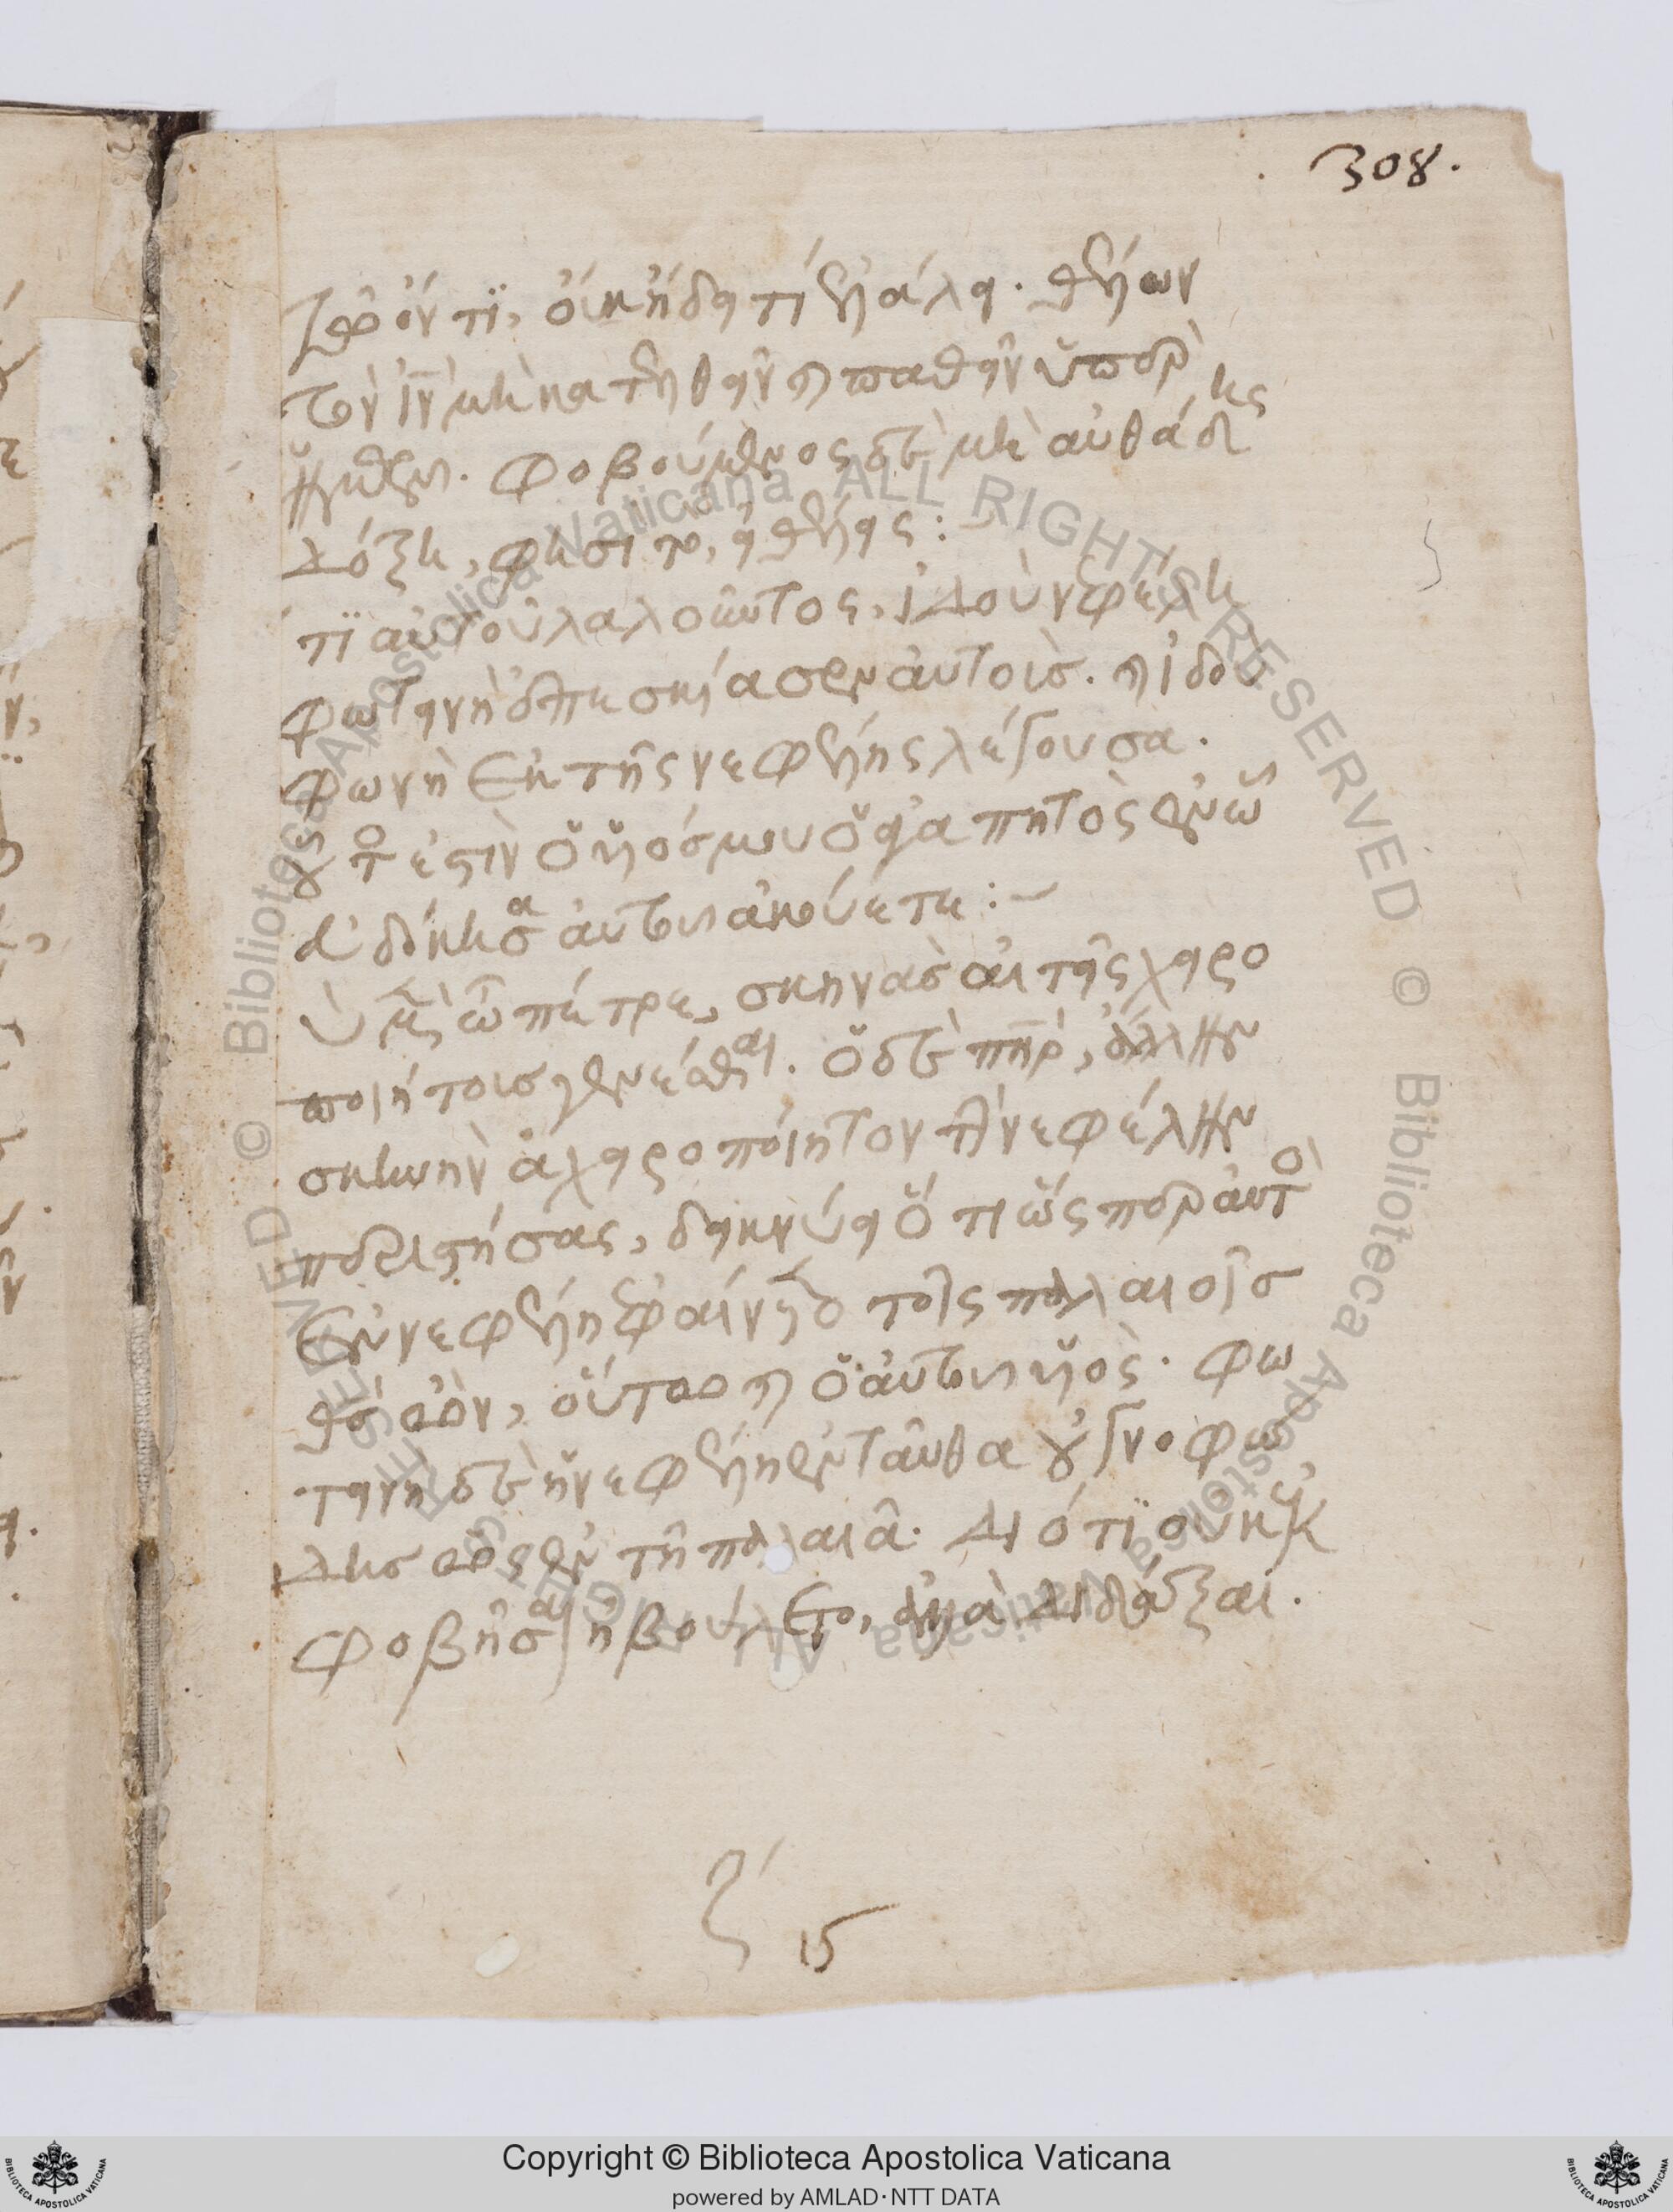 308.
φρόντι, οὐκ ἤδει τί ἐλάλει. θέλων
τὸν ιν μὴ κατελθεῖν καὶ παθεῖν ὑπὲρ
ἡμῶν. φοβούμενος δὲ μὴ αὐθάδης
δόξη, φησὶ τὸ, εἰ θέλεις :
ἔτι αὐτοῦ λαλοῦντος, ἰδοὺ νεφέλη
φωτεινὴ ἐπεσκίασεν αὐτοῖσ. καὶ ἰδοὺ
φωνὴ ἐκ τῆς νεφέλης λέγουσα.
οὗτός ἐστιν ὁ υἱόσ μου ὁ ἀγαπητὸς ἐν ὧ
εὐδόκησα αὐτοῦ ἀκούετε :~
σὺ μὲν ὦ πέτρε, σκηνὰσ αἰτεῖς χειρο
ποιήτοισ γενέσθαι. ὁ δὲ πηρ, ἄλλην
σκηνὴν ἀχειροποίητον τὴν νεφέλην
περιστήσας, δεικνύει ὅτι ὥσπερ αὐτὸς
ἐν νεφέλη ἐφαίνετο τοῖς παλαιοῖσ
θσ ὢν, οὕτω καὶ ὁ αὐτοῦ υἱὸς. φω
τεινὴ δὲ ἡ νεφέλη ἐνταῦθα οὐ γνοφώ
δησ ὡς ἐν τῆ παλαιᾶ. διότι οὐκ ἐκ
φοβῆσαι ἠβούλετο, ἀλλὰ διδάξαι.
15
Copyright © Biblioteca Apostolica Vaticana
powered by AMLAD·NTT DATA